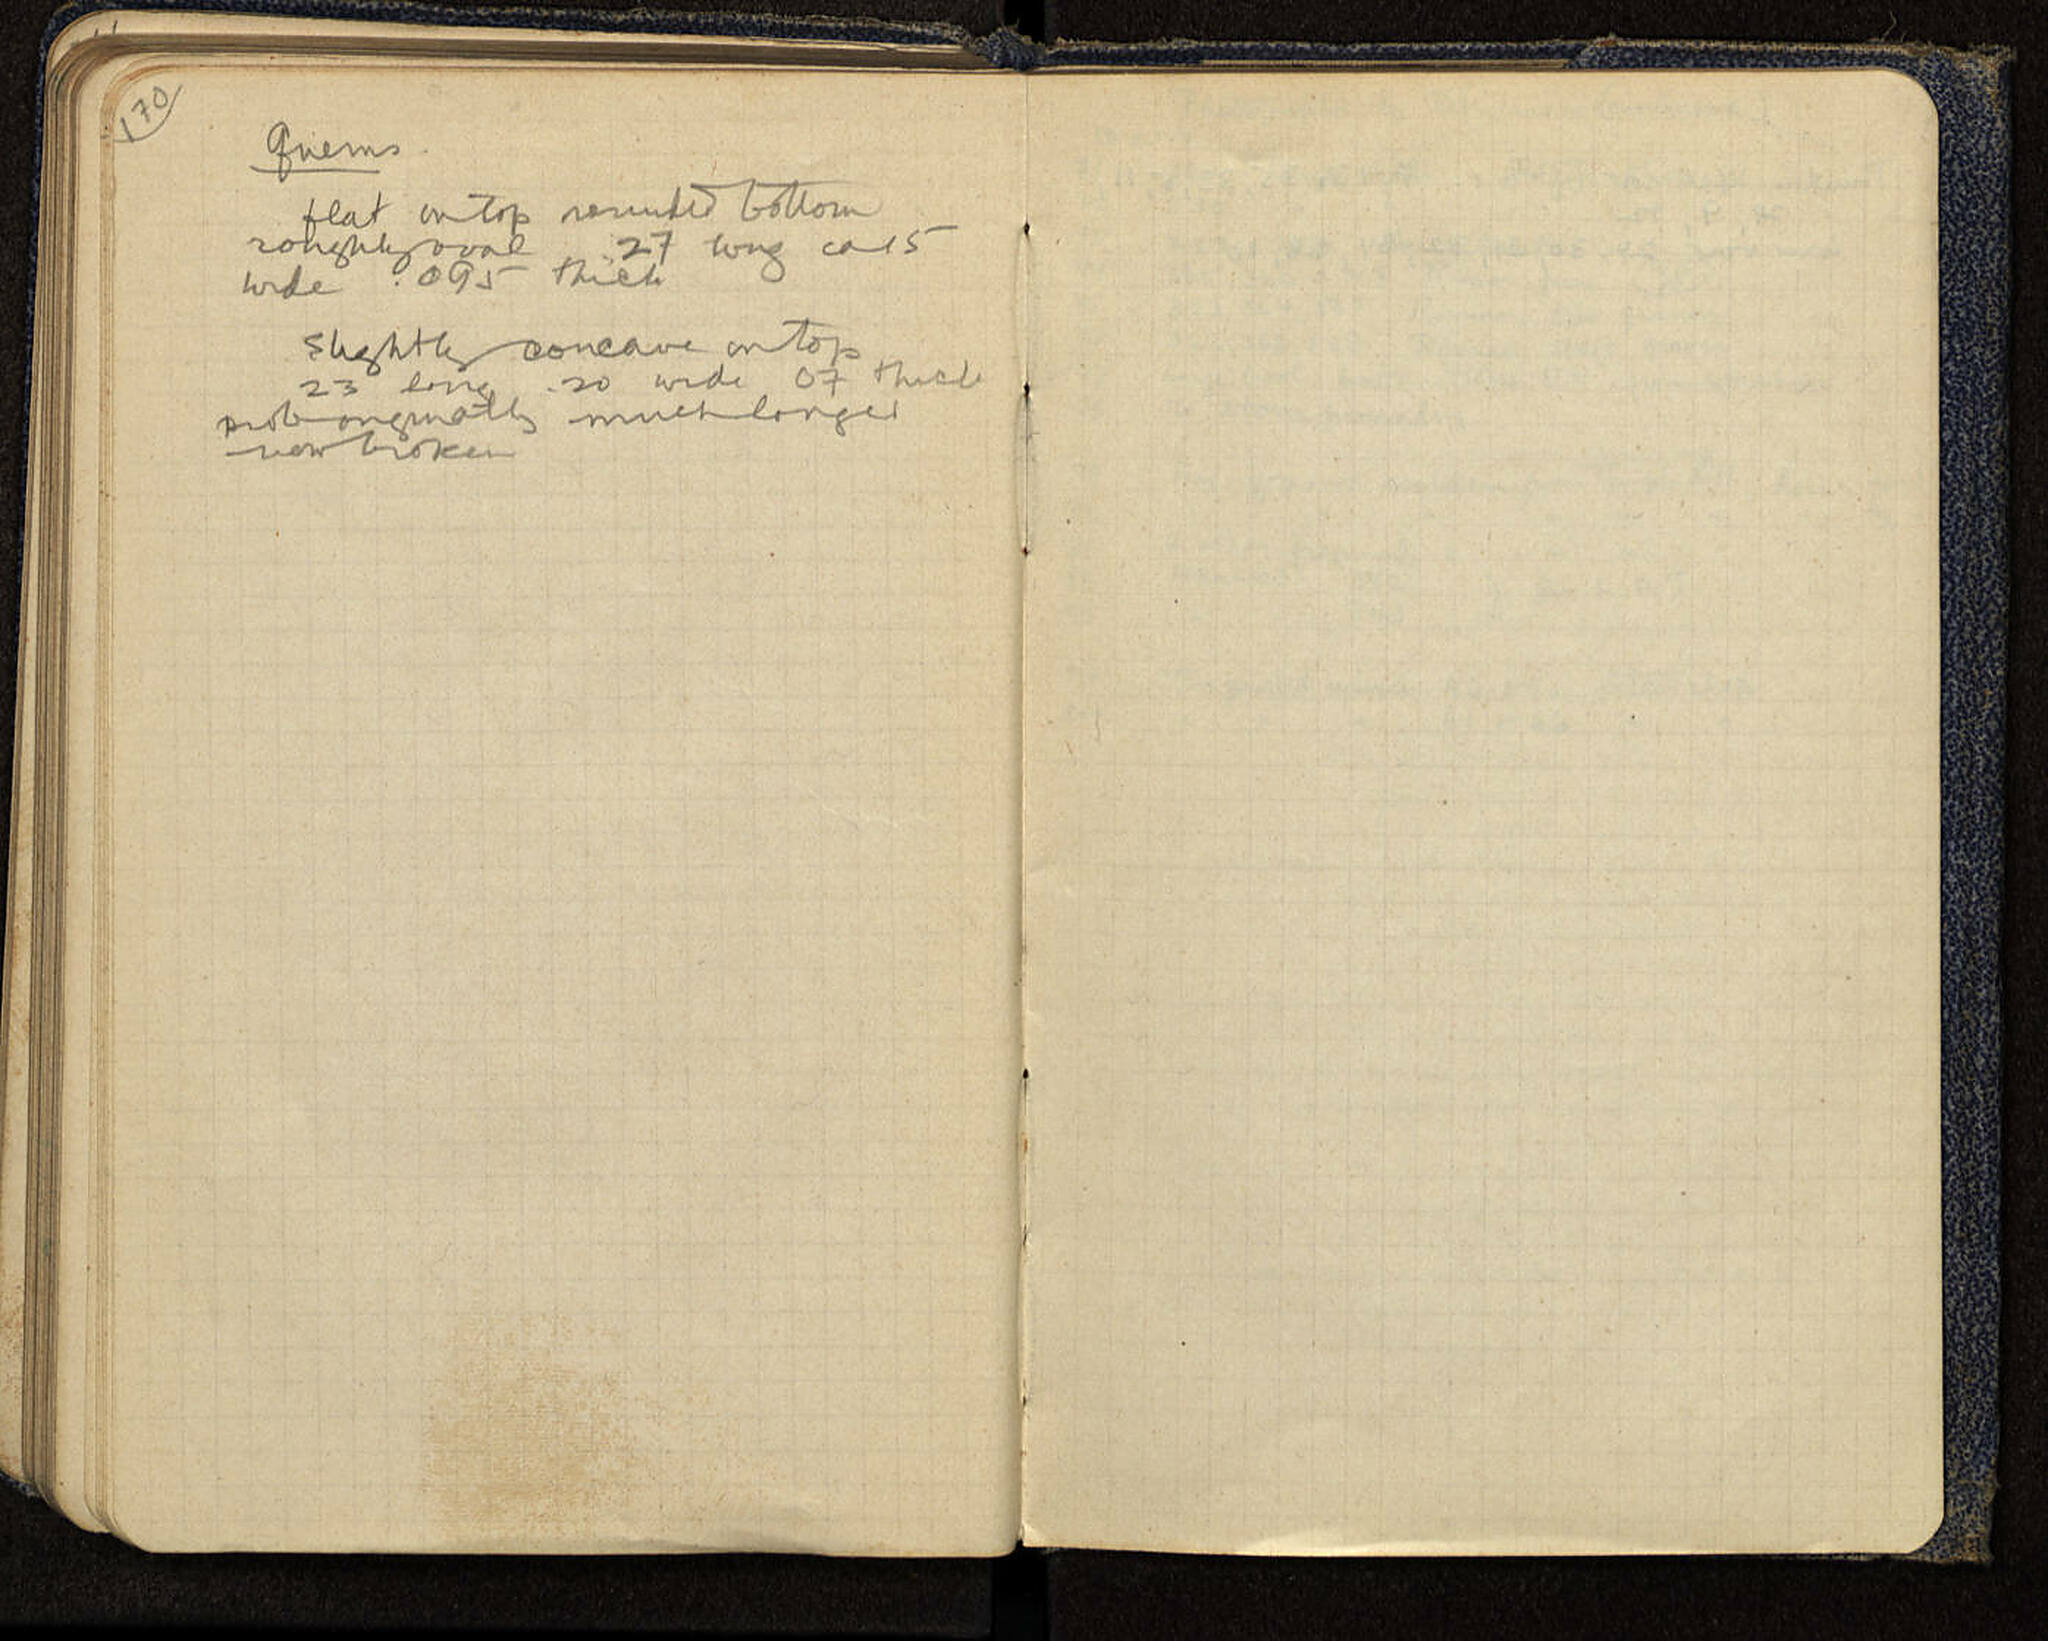 170
Querns
flat on top rounded bottom
roughly oval .27 long ca 15
wide .095 thick
slightly concave on top
23 long .20 wide 07 thick
prob originally much longer
now broken